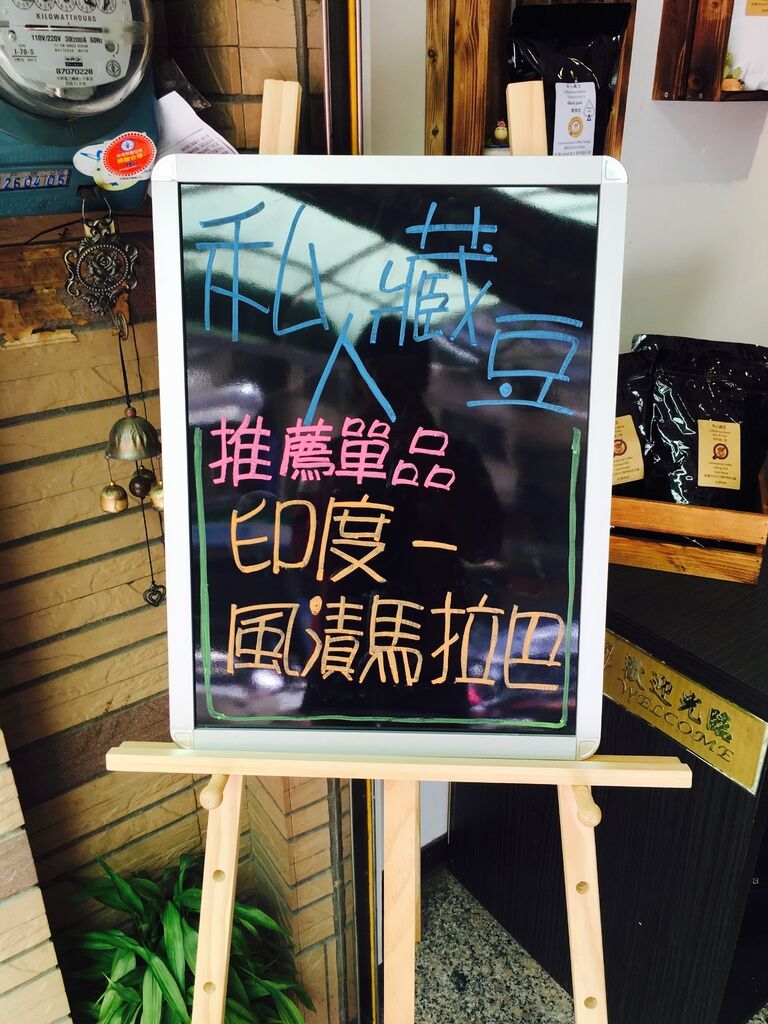 KILOWATTHOURS
110V/220V 30(200)A 60Hz
J-70-S
87070228
260405
私人藏豆
推薦單品
印度-
風漬馬拉巴
歡迎光臨
WELCOME